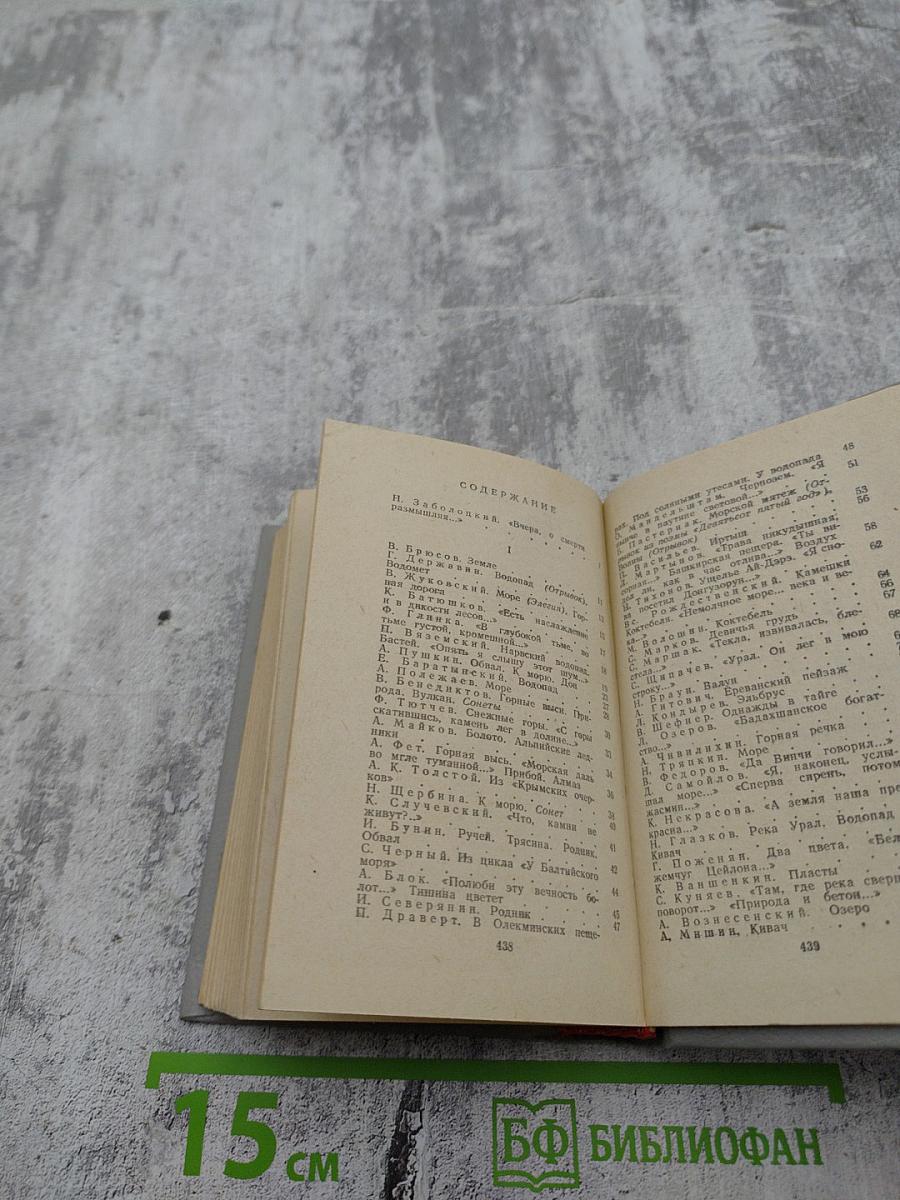 СОДЕРЖАНИЕ
Н. Заболоцкий. «Вчера, о смерти
размышляя...»
I
В. Брюсов. Земле
Г. Державин. Водопад (Отрывок).
Водомет 11
В. Жуковский. Море (Элегия). Гор-
ная дорога
К. Батюшков. «Есть наслаждение
и в дикости лесов...»
Ф. Глинка. «В глубокой тьме, во
тьме густой, кромешной...» 17
П. Вяземский. Нарвский водопад.
Бастей. «Опять я слышу этот шум...» 18
А. Пушкин. Обвал. К морю. Дон 19
Е. Баратынский. Водопад
А. Полежаев. Море
В. Бенедиктов. Горные выси. При-
рода. Вулкан. Сонеты
Ф. Тютчев. Снежные горы. «С горы
скатившись, камень лег в долине...» 30
А. Майков. Болото. Альпийские лед-
ники 33
А. Фет. Горная высь. «Морская даль
во мгле туманной...» Прибой. Алмаз 34
А. К. Толстой. Из «Крымских очер-
ков» 36
Н. Щербина. К морю. Сонет 38
К. Случевский. «Что, камни не
живут?..» 40
И. Бунин. Ручей. Трясина. Родник.
Обвал 41
С. Черный. Из цикла «У Балтийского
моря» 42
А. Блок. «Полюби эту вечность бо-
лот...» Тишина цветет 44
И. Северянин. Родник 45
П. Драверт. В Олекминских пеще- 47
438
рах. Под соляными утесами. У водопада 48
О. Мандельштам. Чернозем. «Я
нынче в паутине световой...» 51
Б. Пастернак. Морской мятеж (От-
рывок из поэмы «Девятьсот пятый год»). 53
Волны (Отрывок) 56
П. Васильев. Иртыш
Л. Мартынов. «Трава никудышная,
горная...» Башкирская пещера. «Ты ви-
дел ли, как в час отлива...» Воздух 58
Н. Тихонов. Ущелье Ай-Дэрэ. «Я сно-
ва посетил Донгузорун...» 62
Вс. Рождественский. Камешки
Коктебеля. «Немолчное море... века и ве-
ка...» 64
М. Волошин. Коктебель 66
С. Марков. Девичья грудь 67
С. Маршак. «Текла, извивалась, бле-
стела...»
С. Щипачев. «Урал. Он лег в мою
строку...»
Н. Браун. Валун
А. Гитович. Ереванский пейзаж
Л. Кондырев. Эльбрус
В. Шефнер. Однажды в тайге
Л. Озеров. «Бадахшанское богат-
ство...»
А. Чивилихин. Горная речка
Н. Тряпкин. Море
В. Федоров. «Да Винчи говорил...»
Д. Самойлов. «Я, наконец, услы-
шал море...» «Сперва сирень, потом
жасмин...»
К. Некрасова. «А земля наша пре
красна...»
Н. Глазков. Река Урал. Водопад
Кивач
Г. Поженян. Два цвета. «Бел
жемчуг Цейлона...»
К. Ваншенкин. Пласты
С. Куняев. «Там, где река сверш
поворот...» «Природа и бетон...»
А. Вознесенский. Озеро
Д. Мишин. Кивач
439
15 см
БФ БИБЛИОФАН